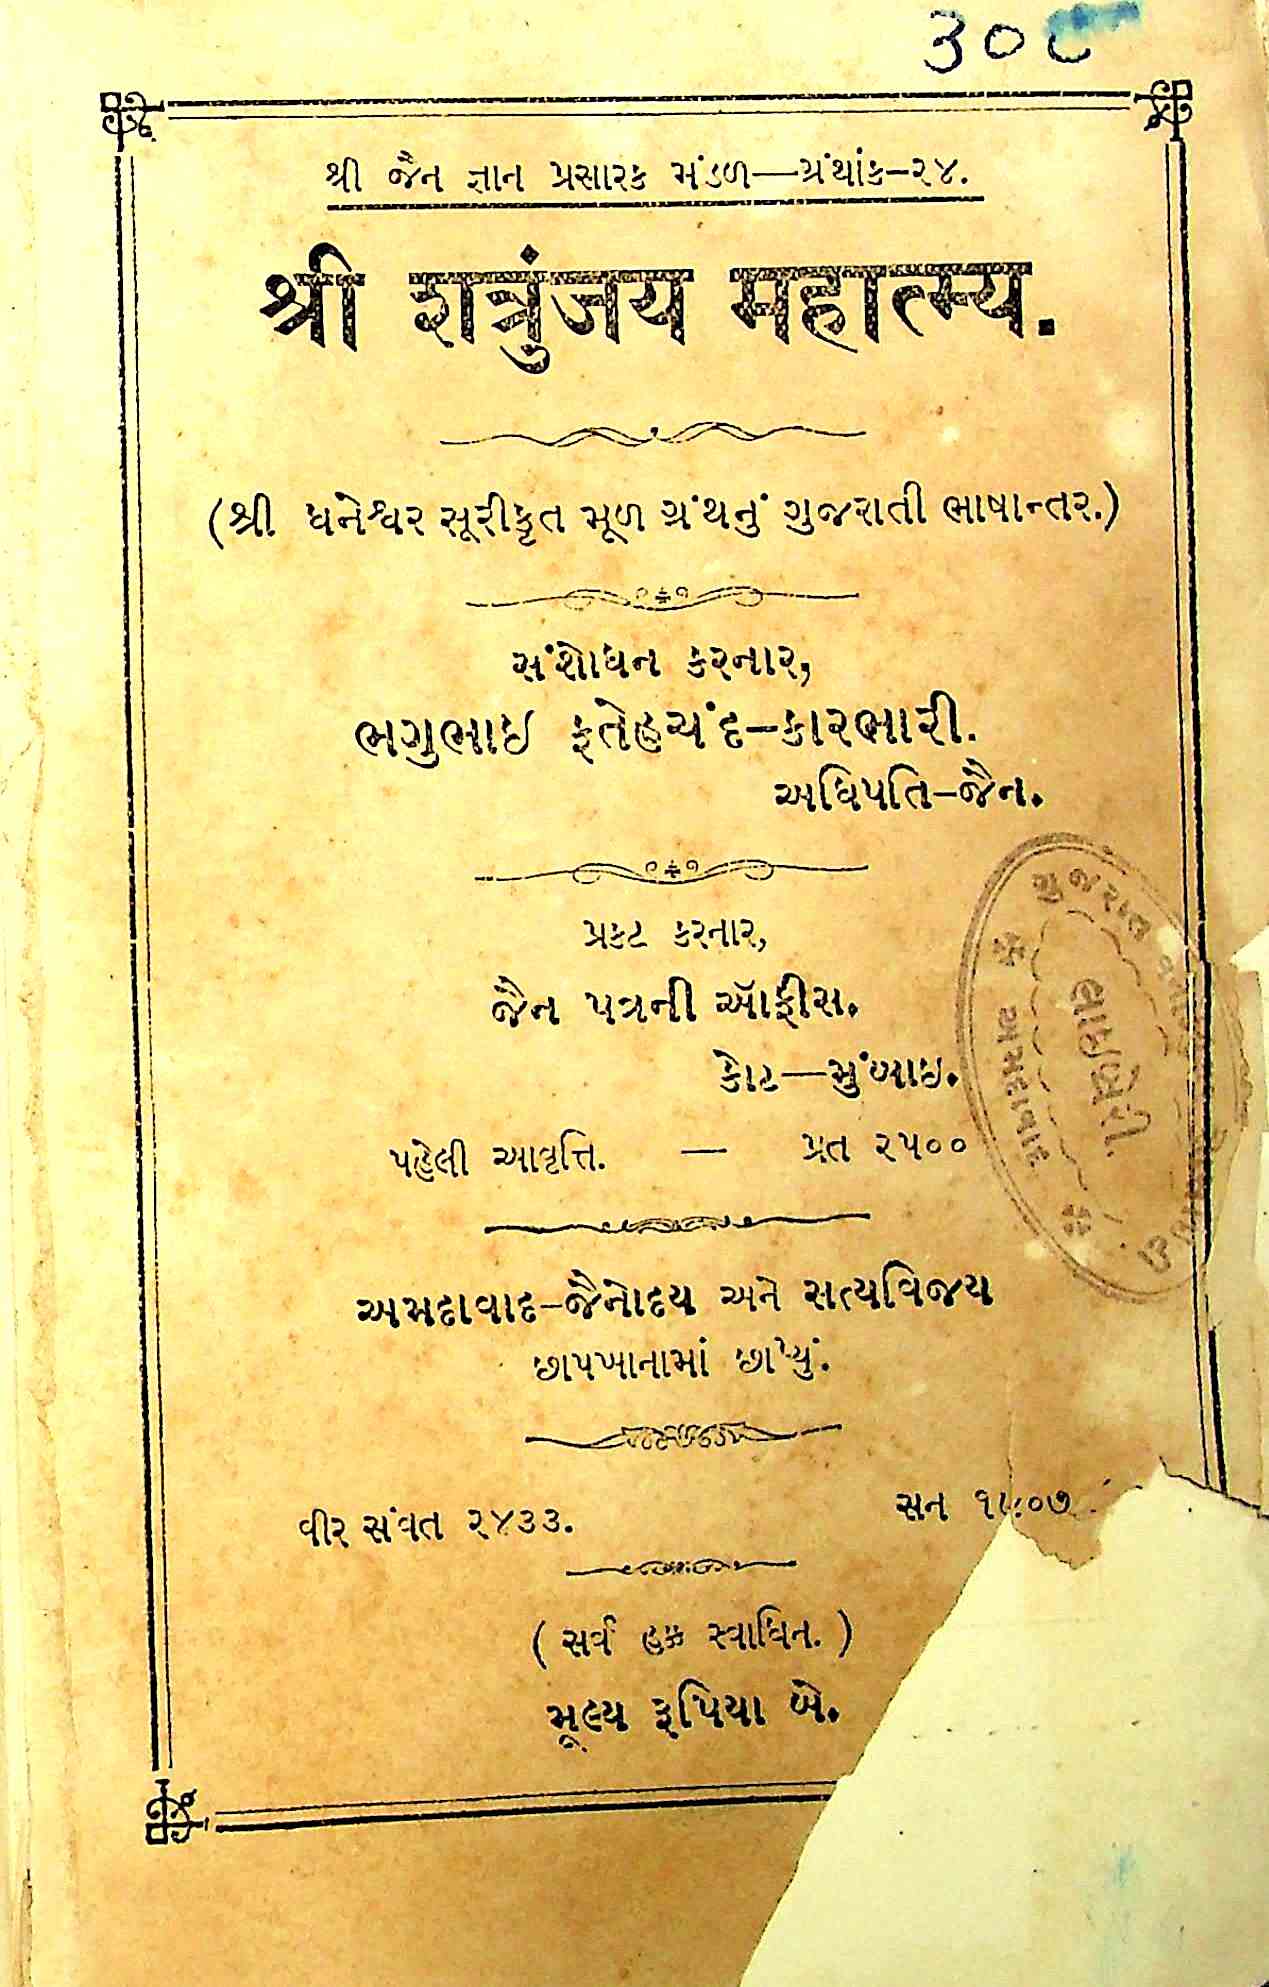 ૩૦૮
શ્રી જૈન જ્ઞાન પ્રસારક મંડળ—ગ્રંથાંક-૨૪.
श्री शत्रुंजय महात्म्य.
(શ્રી ધનેશ્વર સૂરીકૃત મૂળ ગ્રંથનું ગુજરાતી ભાષાન્તર.)
સંશોધન કરનાર,
ભગુભાઇ ફતેહચંદ-કારભારી.
અધિપતિ-જૈન.
પ્રકટ કરનાર,
જૈન પત્રની ઑફીસ.
કોટ—મુંબાઇ.
પહેલી આવૃત્તિ. — પ્રત ૨૫૦૦
અમદાવાદ-જૈનોદય અને સત્યવિજય
છાપખાનામાં છાપ્યું.
વીર સંવત ૨૪૩૩. સન ૧૯૦૭
(સર્વ હક્ક સ્વાધિન.)
મૂલ્ય રૂપિયા બે.
ગુજરાત
લાઇબ્રેરી.
અમદાવાદ